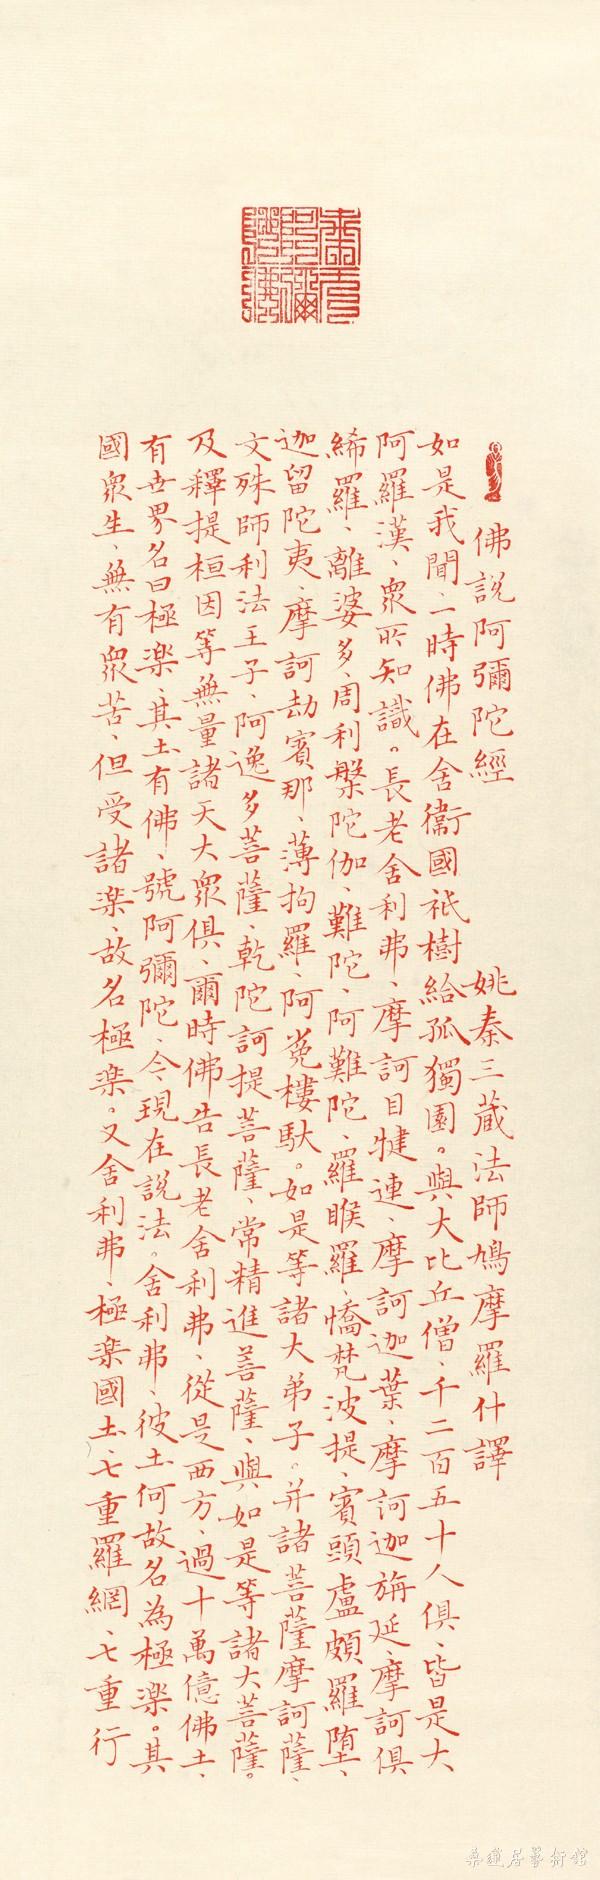 佛說阿彌陀經　姚秦三蔵法師鳩摩羅什譯
如是我聞、一時佛在舍衞國祇樹給孤獨園。與大比丘僧、千二百五十人俱、皆是大
阿羅漢、衆所知識。長老舍利弗、摩訶目犍連、摩訶迦葉、摩訶迦旃延、摩訶俱
絺羅、離婆多、周利槃陀伽、難陀、阿難陀、羅睺羅、憍梵波提、賓頭盧頗羅堕、
迦留陀夷、摩訶劫賓那、薄拘羅、阿㝹樓馱。如是等諸大弟子。并諸菩薩摩訶薩、
文殊師利法王子、阿逸多菩薩、乾陀訶提菩薩、常精進菩薩、與如是等諸大菩薩。
及釋提桓因等無量諸天大衆俱、爾時佛告長老舍利弗、從是西方、過十萬億佛土、
有世界名曰極楽、其土有佛、號阿彌陀、今現在說法。舍利弗、彼土何故名為極楽。其
國衆生、無有衆苦、但受諸楽、故名極楽。又舍利弗、極楽國土、七重羅網、七重行